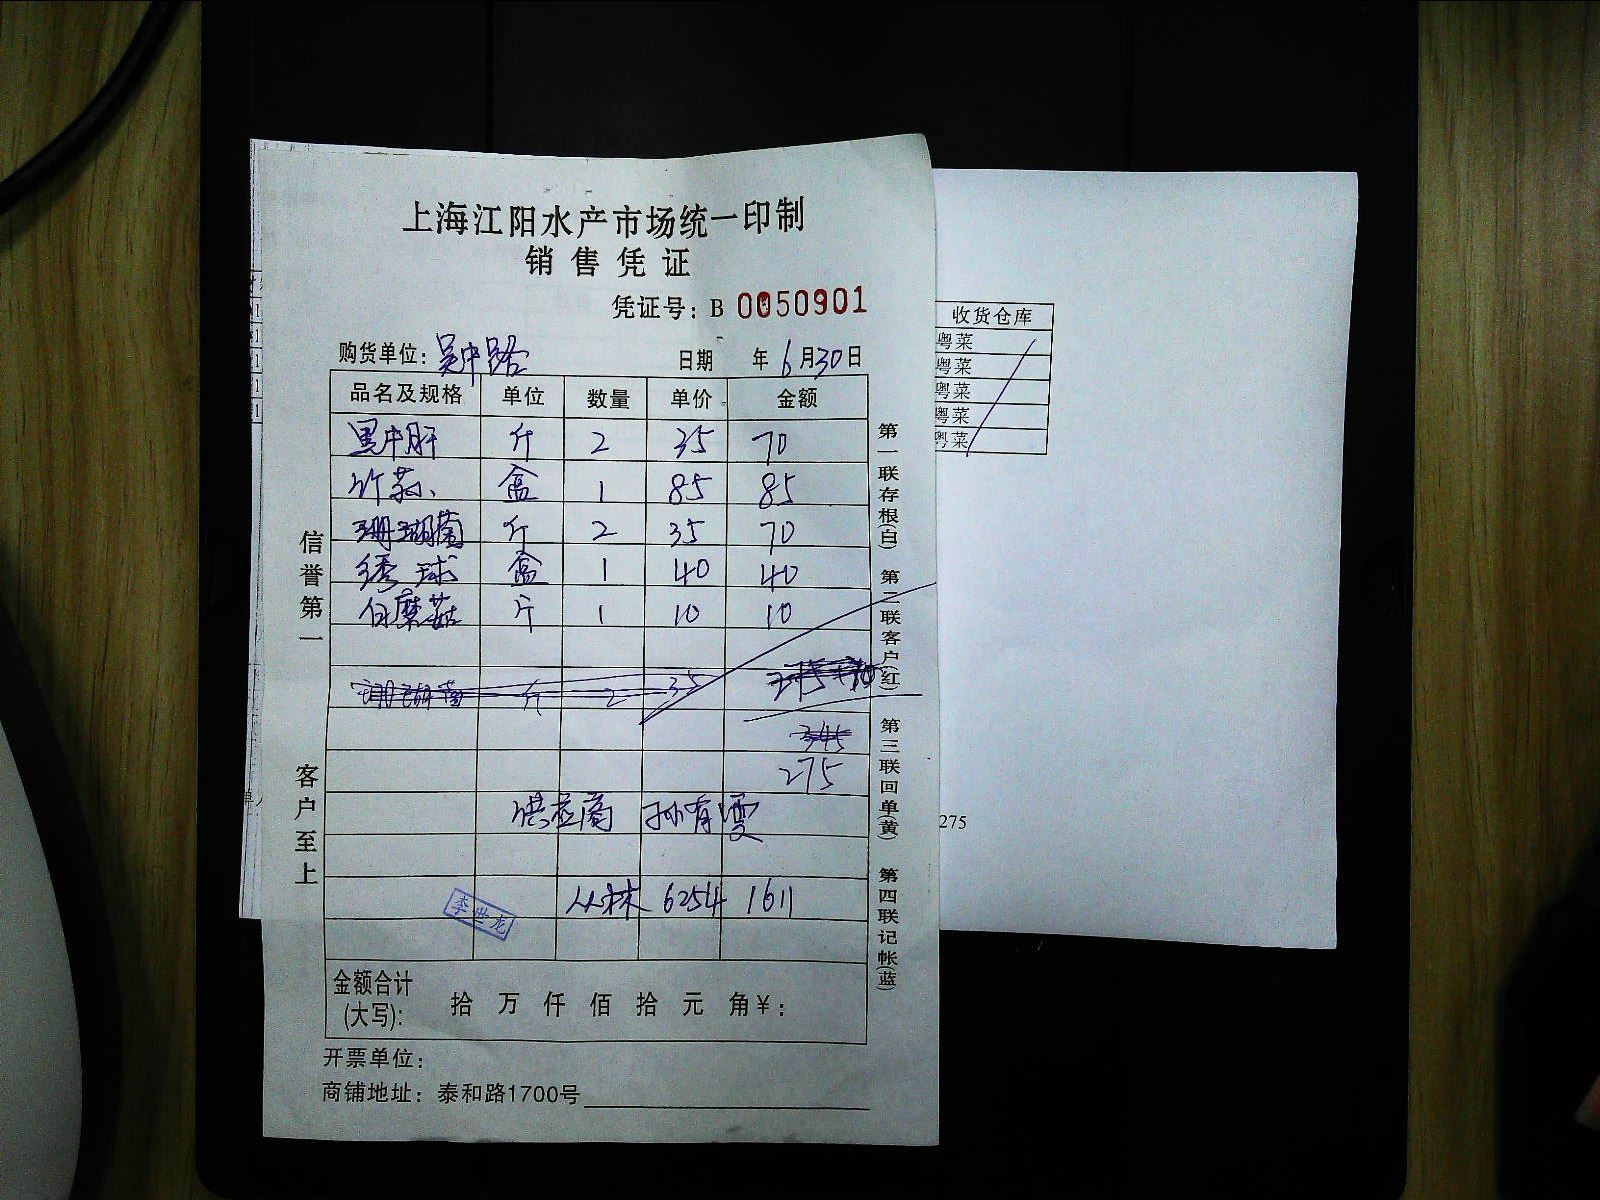 上海江阳水产市场统一印制
销售凭证
凭证号：B 0050901
购货单位：吴中路 日期 年6月30日
品名及规格 单位 数量 单价 金额
黑牛肝 斤 2 35 70
竹荪 盒 1 85 85
珊瑚菌 斤 2 35 70
绣球 盒 1 40 40
白蘑菇 斤 1 10 10
珊瑚菌 斤 2 35 275+70
345
275
供应商 孙有雯
丛林 6254 1611
李世龙
金额合计(大写)： 拾 万 仟 佰 拾 元 角 ¥：
开票单位：
商铺地址：泰和路1700号
信誉第一
客户至上
第一联存根(白) 第二联客户(红) 第三联回单(黄) 第四联记帐(蓝)
收货仓库
粤菜
粤菜
粤菜
粤菜
粤菜
275